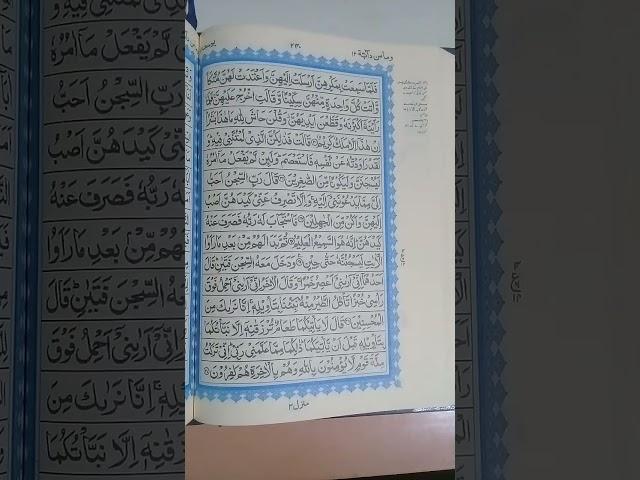 يوسف ١٢
٢٣٠
وما من دآبة ١٢
فَلَمَّا سَمِعَتْ بِمَكْرِهِنَّ اَرْسَلَتْ اِلَيْهِنَّ وَاَعْتَدَتْ لَهُنَّ مُتَّكَاً
وَّاٰتَتْ كُلَّ وَاحِدَةٍ مِّنْهُنَّ سِكِّيْنًا وَّقَالَتِ اخْرُجْ عَلَيْهِنَّ ۚ فَلَمَّا
رَاَيْنَهٗٓ اَكْبَرْنَهٗ وَقَطَّعْنَ اَيْدِيَهُنَّ وَقُلْنَ حَاشَ لِلّٰهِ مَا هٰذَا بَشَرًا ؕ
اِنْ هٰذَآ اِلَّا مَلَكٌ كَرِيْمٌ ۝ قَالَتْ فَذٰلِكُنَّ الَّذِيْ لُمْتُنَّنِيْ فِيْهِ ؕ وَ
لَقَدْ رَاوَدْتُّهٗ عَنْ نَّفْسِهٖ فَاسْتَعْصَمَ ؕ وَلَئِنْ لَّمْ يَفْعَلْ مَآ اٰمُرُهٗ
لَيُسْجَنَنَّ وَلَيَكُوْنًا مِّنَ الصّٰغِرِيْنَ ۝ قَالَ رَبِّ السِّجْنُ اَحَبُّ
اِلَيَّ مِمَّا يَدْعُوْنَنِيْٓ اِلَيْهِ ۚ وَاِلَّا تَصْرِفْ عَنِّيْ كَيْدَهُنَّ اَصْبُ
اِلَيْهِنَّ وَاَكُنْ مِّنَ الْجٰهِلِيْنَ ۝ فَاسْتَجَابَ لَهٗ رَبُّهٗ فَصَرَفَ عَنْهُ
كَيْدَهُنَّ ؕ اِنَّهٗ هُوَ السَّمِيْعُ الْعَلِيْمُ ۝ ثُمَّ بَدَا لَهُمْ مِّنْۢ بَعْدِ مَا رَاَوُا
الْاٰيٰتِ لَيَسْجُنُنَّهٗ حَتّٰى حِيْنٍ ۝ وَدَخَلَ مَعَهُ السِّجْنَ فَتَيٰنِ ؕ قَالَ
اَحَدُهُمَآ اِنِّيْٓ اَرٰىنِيْٓ اَعْصِرُ خَمْرًا ۚ وَقَالَ الْاٰخَرُ اِنِّيْٓ اَرٰىنِيْٓ اَحْمِلُ فَوْقَ
رَاْسِيْ خُبْزًا تَاْكُلُ الطَّيْرُ مِنْهُ ؕ نَبِّئْنَا بِتَاْوِيْلِهٖ ۚ اِنَّا نَرٰىكَ مِنَ
الْمُحْسِنِيْنَ ۝ قَالَ لَا يَاْتِيْكُمَا طَعَامٌ تُرْزَقٰنِهٖٓ اِلَّا نَبَّاْتُكُمَا
بِتَاْوِيْلِهٖ قَبْلَ اَنْ يَّاْتِيَكُمَا ؕ ذٰلِكُمَا مِمَّا عَلَّمَنِيْ رَبِّيْ ؕ اِنِّيْ تَرَكْتُ
مِلَّةَ قَوْمٍ لَّا يُؤْمِنُوْنَ بِاللّٰهِ وَهُمْ بِالْاٰخِرَةِ هُمْ كٰفِرُوْنَ ۝
منزل ٣